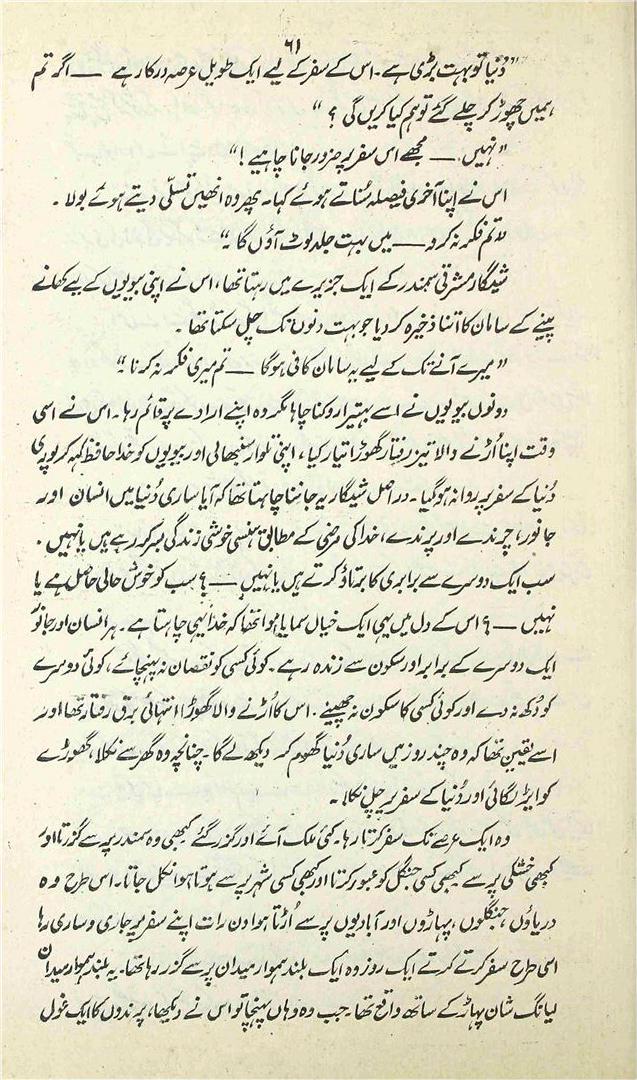 ۶۱
"دُنیا تو بہت بڑی ہے۔ اس کے سفر کے لیے ایک طویل عرصہ درکار ہے — اگر تم
ہمیں چھوڑ کر چلے گئے تو ہم کیا کریں گی ؟"
"نہیں — مجھے اس سفر پر ضرور جانا چاہیے !"
اس نے اپنا آخری فیصلہ سُناتے ہوئے کہا۔ پھر وہ انھیں تسلّی دیتے ہوئے بولا۔
"تم فکر نہ کرو — میں بہت جلد لوٹ آؤں گا۔"
شیدگار مشرقی سمندر کے ایک جزیرے میں رہتا تھا، اس نے اپنی بیویوں کے لیے کھانے
پینے کے سامان کا اتنا ذخیرہ کر دیا جو بہت دنوں تک چل سکتا تھا۔
"میرے آنے تک کے لیے یہ سامان کافی ہوگا — تم میری فکر نہ کرنا۔"
دونوں بیویوں نے اسے بہتیرا روکنا چاہا مگر وہ اپنے ارادے پر قائم رہا۔ اس نے اسی
وقت اپنا اُڑنے والا تیز رفتار گھوڑا تیار کیا، اپنی تلوار سنبھالی اور بیویوں کو خدا حافظ کہہ کر پوری
دُنیا کے سفر پر روانہ ہوگیا۔ دراصل شیدگار یہ جاننا چاہتا تھا کہ آیا ساری دُنیا میں انسان اور
جانور، چرندے اور پرندے، خدا کی مرضی کے مطابق ہنسی خوشی زندگی بسر کر رہے ہیں یا نہیں۔
سب ایک دوسرے سے برابری کا برتاؤ کرتے ہیں یا نہیں — ؟ سب کو خوش حالی حاصل ہے یا
نہیں — ؟ اس کے دل میں یہی ایک خیال سمایا ہوا تھا کہ خدا یہی چاہتا ہے۔ ہر انسان اور جانور
ایک دوسرے کے برابر اور سکون سے زندہ رہے۔ کوئی کسی کو نقصان نہ پہنچائے، کوئی دوسرے
کو دُکھ نہ دے اور کوئی کسی کا سکون نہ چھینے۔ اس کا اُڑنے والا گھوڑا انتہائی برق رفتار تھا اور
اسے یقین تھا کہ وہ چند روز میں ساری دُنیا گھوم کر دیکھ لے گا۔ چنانچہ وہ گھر سے نکلا، گھوڑے
کو ایڑ لگائی اور دُنیا کے سفر پر چل نکلا۔
وہ ایک عرصے تک سفر کرتا رہا۔ کئی ملک آئے اور گزر گئے کبھی وہ سمندر پر سے گزرتا اور
کبھی خشکی پر سے کبھی کسی جنگل کو عبور کرتا اور کبھی کسی شہر پر سے ہوتا ہوا نکل جاتا۔ اس طرح وہ
دریاؤں، جنگلوں، پہاڑوں اور آبادیوں پر سے اُڑتا ہوا دن رات اپنے سفر پر جاری و ساری رہا
اسی طرح سفر کرتے کرتے ایک روز وہ ایک بلند ہموار میدان پر سے گزر رہا تھا۔ یہ بلند ہموار میدان
لیانگ شان پہاڑ کے ساتھ واقع تھا۔ جب وہ وہاں پہنچا تو اس نے دیکھا، پرندوں کا ایک غول